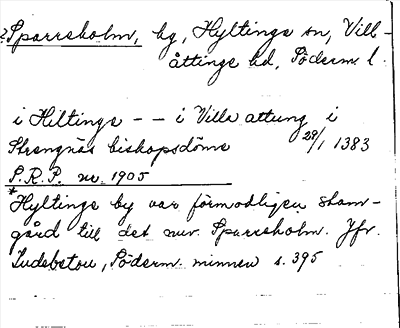 ? Sparreholm, hg, Hyltinge sn, Vill-
åttinge hd, Söderm l.
i Hiltinge - - i Villa attung i
Strengnäs biskopsdöme 29/1 1383
S.R.P. nr. 1905
*Hyltinge by var förmodligen stam-
gård till det nuv. Sparreholm. Jfr.
Indebetou, Söderm. minnen s. 395